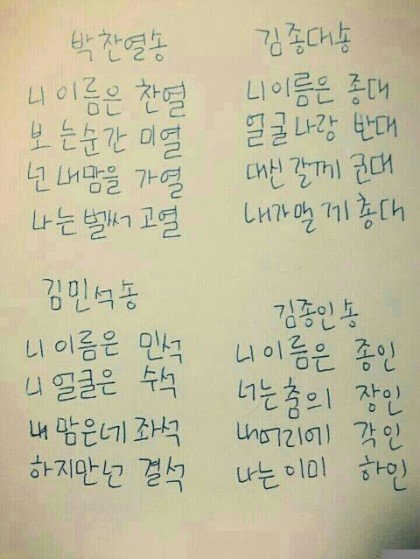 박찬열송
니 이름은 찬열
보는순간 미열
넌 내맘을 가열
나는 벌써 고열
김종대송
니이름은 종대
얼굴나랑 반대
대신 갈께 군대
내가멜께 총대
김민석송
니 이름은 민석
니 얼굴은 수석
내 맘은네 좌석
하지만넌 결석
김종인송
니 이름은 종인
너는춤의 장인
내머리에 각인
나는이미 하인